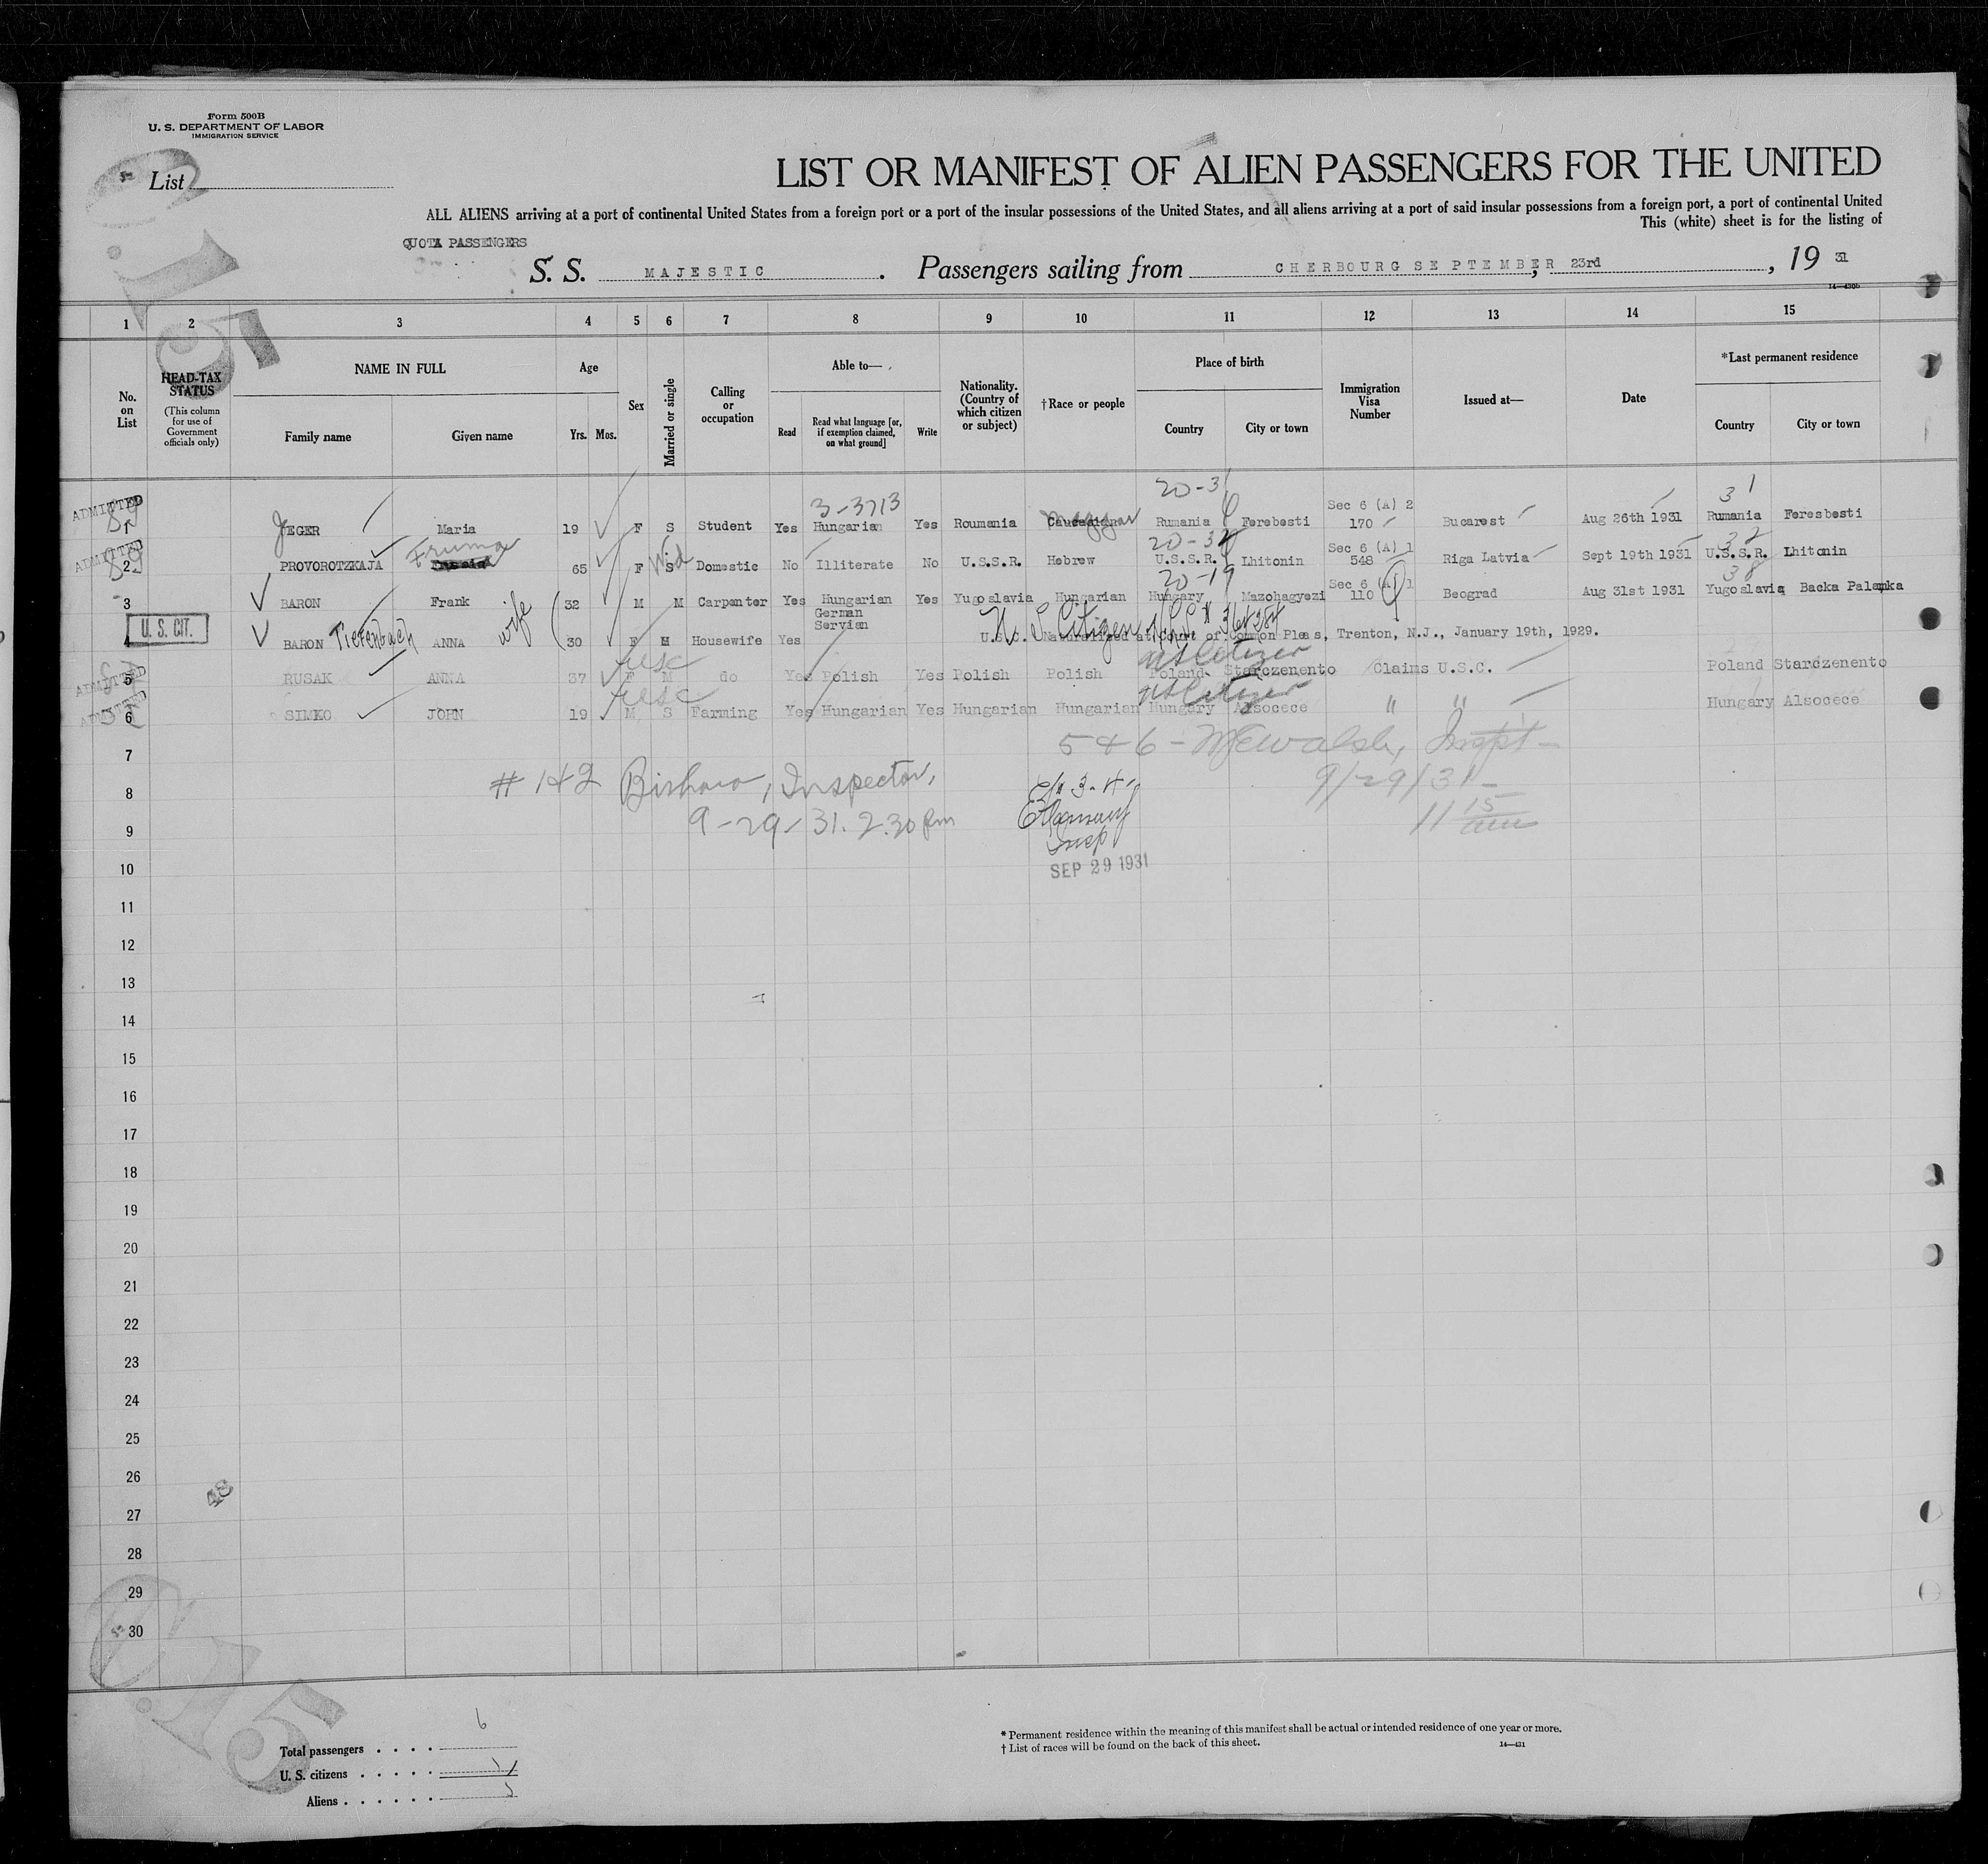 Form 500B
U. S. DEPARTMENT OF LABOR
IMMIGRATION SERVICE
List
LIST OR MANIFEST OF ALIEN PASSENGERS FOR THE UNITED
ALL ALIENS arriving at a port of continental United States from a foreign port or a port of the insular possessions of the United States, and all aliens arriving at a port of said insular possessions from a foreign port, a port of continental United
This (white) sheet is for the listing of
QUOTA PASSENGERS
S. S. MAJESTIC . Passengers sailing from CHERBOURG SEPTEMBER 23rd , 19 31
1 2 3 4 5 6 7 8 9 10 11 12 13 14 15
No. on List
HEAD-TAX STATUS (This column for use of Government officials only)
NAME IN FULL Family name Given name
Age Yrs. Mos.
Sex
Married or single
Calling or occupation
Able to— Read Read what language [or, if exemption claimed, on what ground] Write
Nationality. (Country of which citizen or subject)
†Race or people
Place of birth Country City or town
Immigration Visa Number
Issued at—
Date
*Last permanent residence Country City or town
3-3713 20-31 31
ADMITTED 1 JEGER Maria 19 F S Student Yes Hungarian Yes Roumania Caucasian Magyar Rumania Ferebesti Sec 6 (A) 2 170 Bucarest Aug 26th 1931 Rumania Feresbesti
20-32 32
ADMITTED 2 PROVOROTZKAJA Fruma 65 F S Wid Domestic No Illiterate No U.S.S.R. Hebrew U.S.S.R. Lhitonin Sec 6 (A) 1 548 Riga Latvia Sept 19th 1931 U.S.S.R. Lhitonin
20-19 38
3 BARON Frank 32 M M Carpenter Yes Hungarian German Servian Yes Yugoslavia Hungarian Hungary Mazohagyezi Sec 6 (A) 1 110 Beograd Aug 31st 1931 Yugoslavia Backa Palanka
U. S. CIT. 4 BARON Tiefenbach ANNA wife 30 F M Housewife Yes U.S.C. Naturalized at Court of Common Pleas, Trenton, N.J., January 19th, 1929.
U S Citizen
ADMITTED 5 RUSAK ANNA 37 F M do Yes Polish Yes Polish Polish Poland Starczenento Claims U.S.C. Poland Starczenento
USC US Citizen
ADMITTED 6 SIMKO JOHN 19 M S Farming Yes Hungarian Yes Hungarian Hungarian Hungary Alsocece " " Hungary Alsocece
USC US Citizen
7
5 & 6 - Inspt-
8
# 1 & 2 Inspector,
9/29/31-
9
9-29-31. 2.30 pm
11 15 am
Insp
10
SEP 29 1931
11
12
13
14
15
16
17
18
19
20
21
22
23
24
25
26
48
27
28
29
30
Total passengers . . . . 6
U. S. citizens . . . . . 1
Aliens . . . . . . 5
* Permanent residence within the meaning of this manifest shall be actual or intended residence of one year or more.
† List of races will be found on the back of this sheet.
14—431